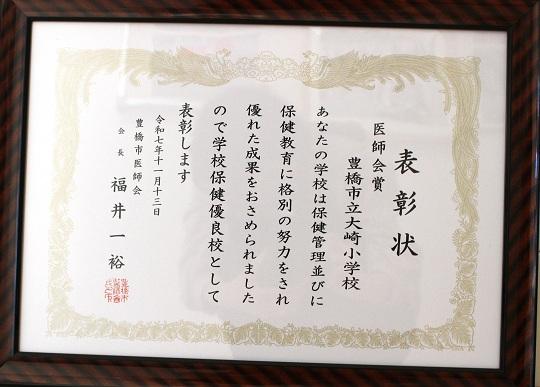 表彰状
医師会賞
豊橋市立大崎小学校
あなたの学校は保健管理並びに
保健教育に格別の努力をされ
優れた成果をおさめられました
ので学校保健優良校として
表彰します
令和七年十一月十三日
豊橋市医師会
会長 福井一裕